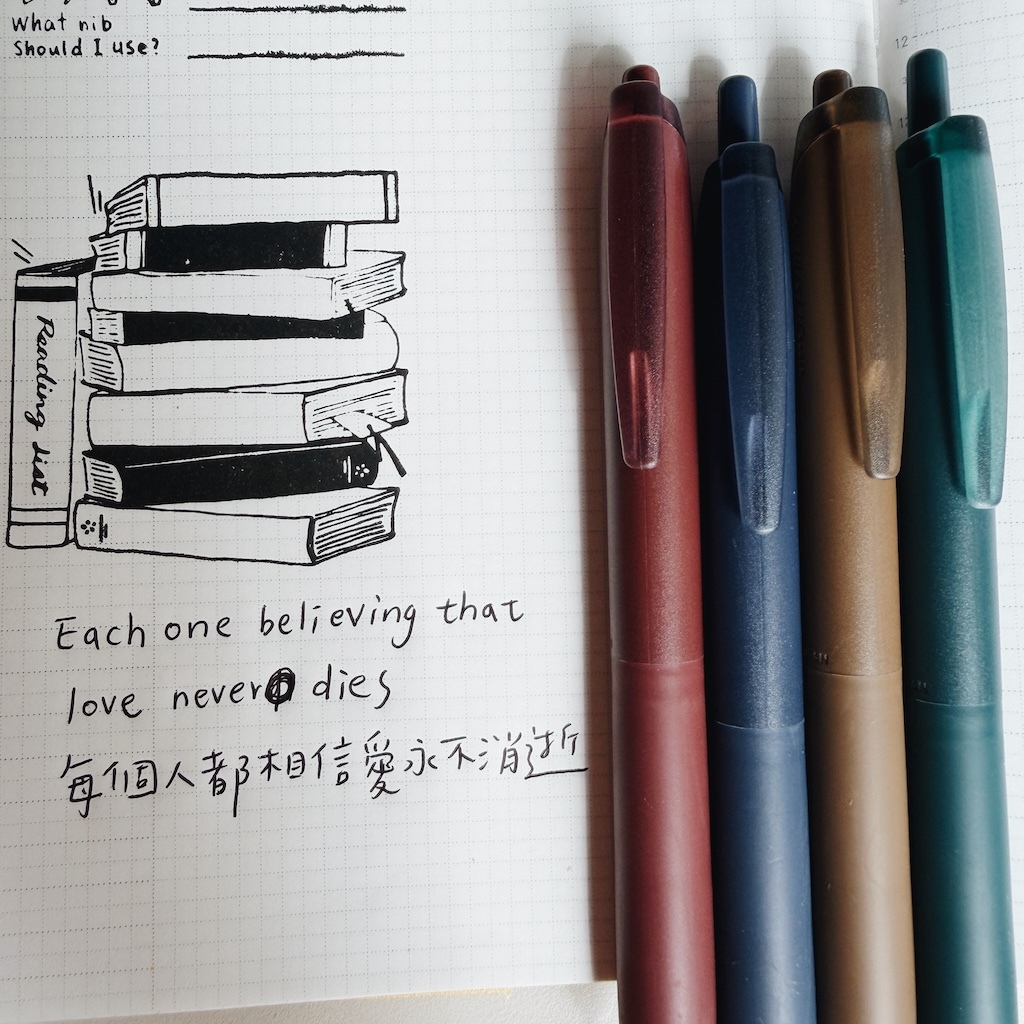 What nib
Should I use?
Reading List
Each one believing that
love never dies
每個人都相信愛永不消逝
12